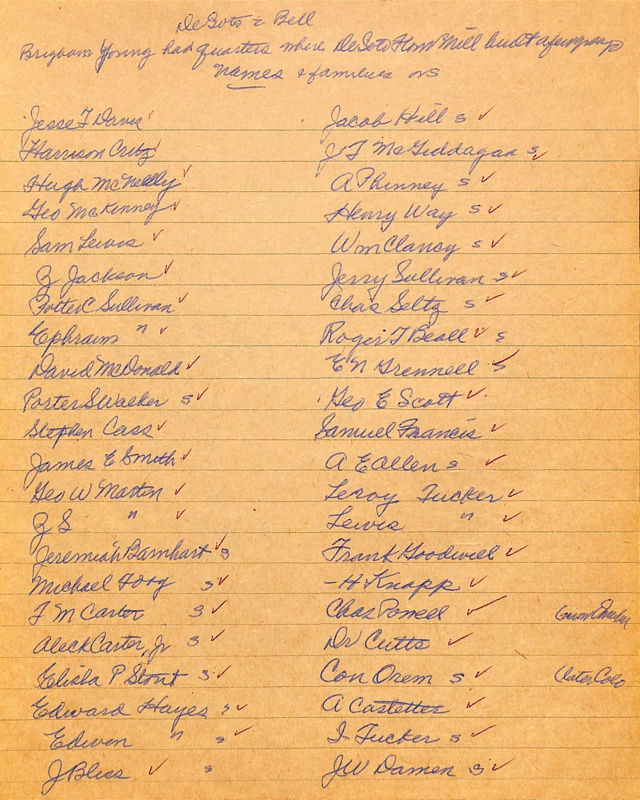 DeSoto & Bell
Brigham Young had quarters where DeSoto Flour Mill built
Names & families
Jesse T Davis
Harrison Critz
Hugh McNeelly
Geo McKinney
Sam Lewis
Z Jackson
Potter C Sullivan
Ephraim "
David McDonald
Porter S Walker s
Stephen Cass
James E Smith
Geo W Martin
Z S "
Jeremiah Barnhart s
Michael s
T M Carter s
Aleck Carter, Jr s
Elisha P Stout s
Edward Hayes s
Edwin " s
J Bliss s
Jacob Hill s
J T McGiddagan s
A Phinney s
Henry Way s
Wm Clancy s
Jerry Sullivan s
Chas Seltz s
Roger T Beall s
E N Grennell s
Geo E Scott
Samuel Francis
A E Allen s
Leroy Tucker
Lewis "
Frank Goodwill
- H Knapp
Chas Powell
Dr Cutts
Con Orem s Later Colo
A Castetter
I Tucker s
JW Damen s